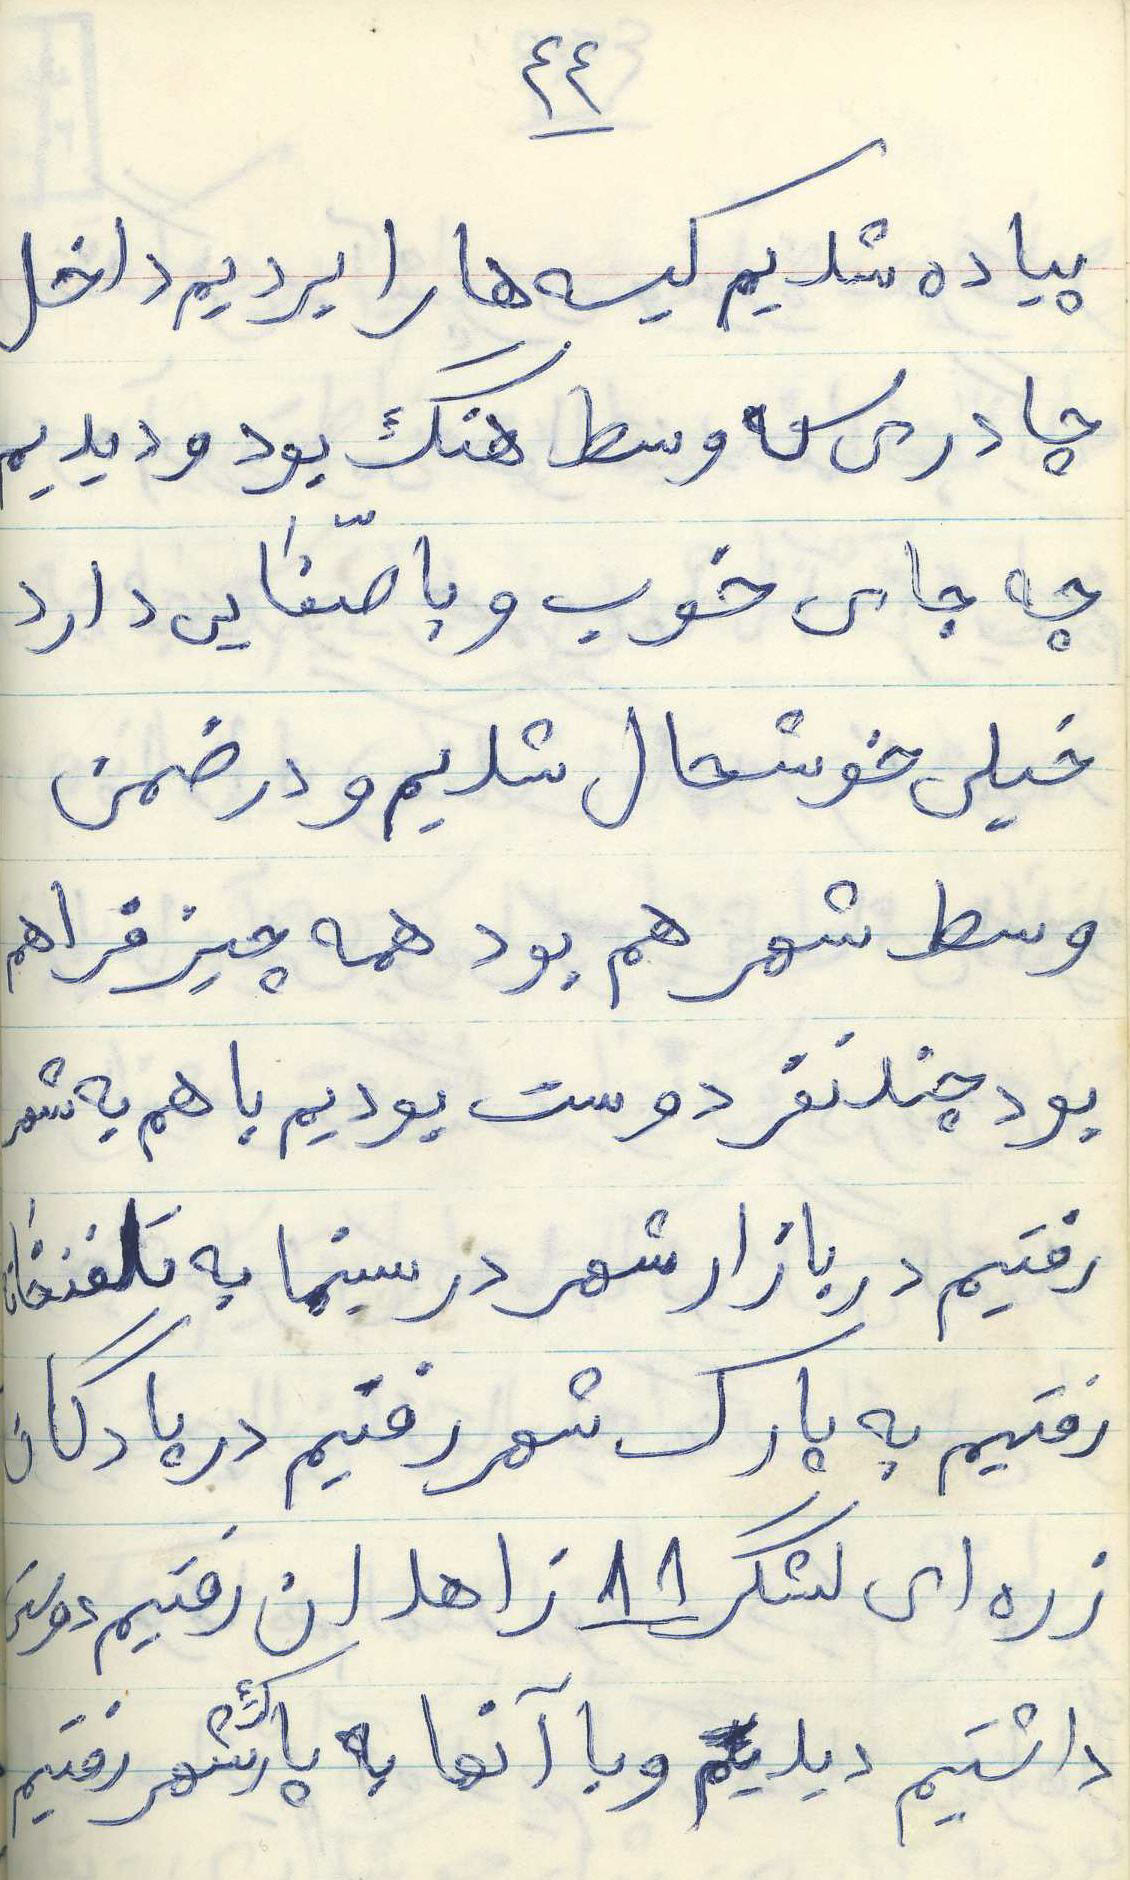 ٤٤
پیاده شدیم کیسه ها را بردیم داخل
چادری که وسط هنگ بود و دیدیم
چه جای خوب و با صّفایی دارد
خیلی خوشحال شدیم و در ضمن
وسط شهر هم بود همه چیز فراهم
بود چند نفر دوست بودیم با هم به شهر
رفتیم در بازار شهر در سینما به تلفنخانه
رفتیم به پارک شهر رفتیم در پادگان
زره ای لشگر ۸۸ زاهدان رفتیم دوستی
داشتیم دیدیم و با آنها به پارک شهر رفتیم